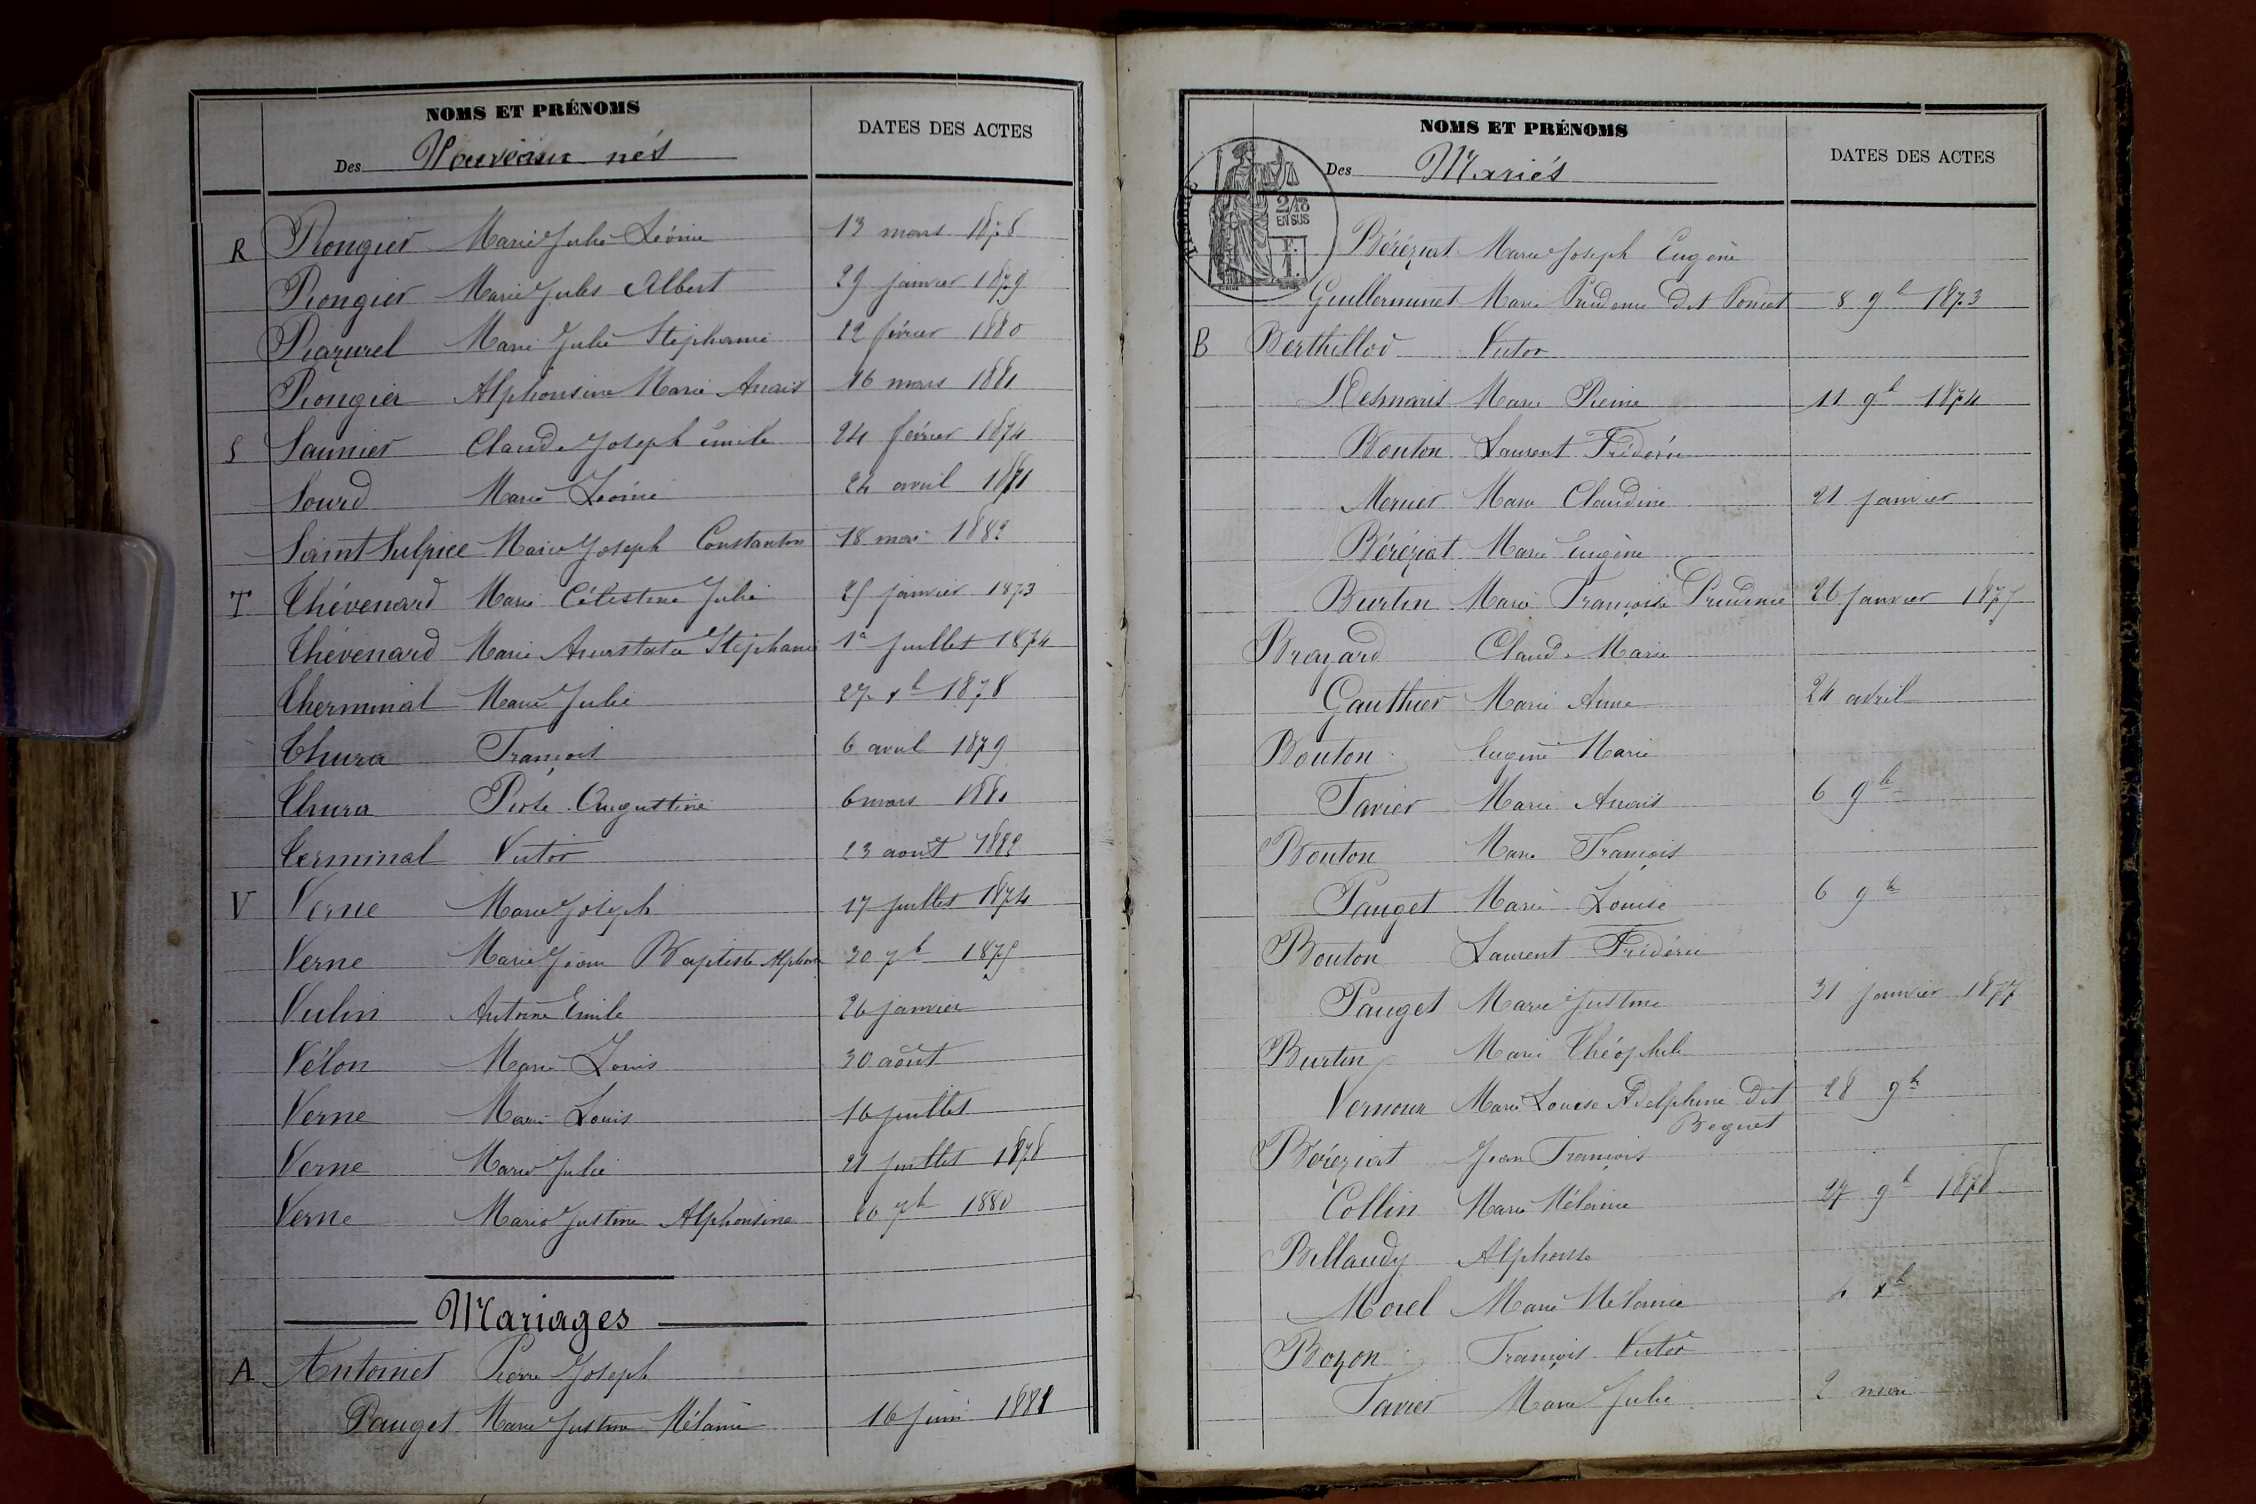 NOMS ET PRÉNOMS
DATES DES ACTES
Des Nouveaux nés
R Rongier Marie Julie Léonie 13 mars 1878
Rongier Marie Jules Albert 29 janvier 1879
Razurel Marie Julie Stéphanie 22 février 1880
Rongier Alphonsine Marie Anais 16 mars 1881
S Saunier Claude Joseph émile 24 février 1874
Sourd Marie Léonie 24 avril
Saint Sulpice Marie Joseph Constantin 18 mai 1882
T Thévenard Marie Célestine Julie 25 janvier 1873
Thévenard Marie Anastasie Stéphanie 1er juillet 1874
Therminal Marie Julie 27 xb 1878
Thura François 6 avril 1879
Thura Perle Augustine 6 mars 1881
Terminal Victor 23 août 1882
V Verne Marie Joseph 17 juillet 1874
Verne Marie Jean Baptiste Alphonse 30 7b 1875
Vulin Antoine Emile 26 janvier
Vélon Marie Louis 30 août
Verne Marie Louis 16 juillet
Verne Marie Julie 21 juillet 1878
Verne Marie Justine Alphonsine 20 7b 1880
Mariages
A Antoinet Pierre Joseph
Pauget Marie Justine Mélanie 16 juin 1881
NOMS ET PRÉNOMS
DATES DES ACTES
Des Mariés
2/10
EN SUS
Béréziat Marie Joseph Eugène
Guillerminet Marie Prudence dit Poncet 8 9b 1873
B Berthillod Victor
Desmaris Marie Pierrine 11 9b 1874
Bouton Laurent Frédéric
Mercier Marie Claudine 21 janvier
Béréziat Marie Eugène
Burtin Marie Françoise Prudence 26 janvier 1875
Brazard Claude Marie
Gauthier Marie Anne 24 avril
Bouton Eugène Marie
Tavier Marie Anais 6 9b
Bouton Marie François
Pauget Marie Louise 6 9b
Bouton Laurent Frédéric
Pauget Marie Justine 31 janvier 1877
Burtin Marie Théophile
Vernoux Marie Louise Adelphine dit 28 9b
Beguet
Béréziat Jean François
Collin Marie Mélanie 27 9b 1878
Billaudy Alphonse
Morel Marie Mélanie 4 xb
Bozon François Victor
Tavier Marie Julie 2 mai